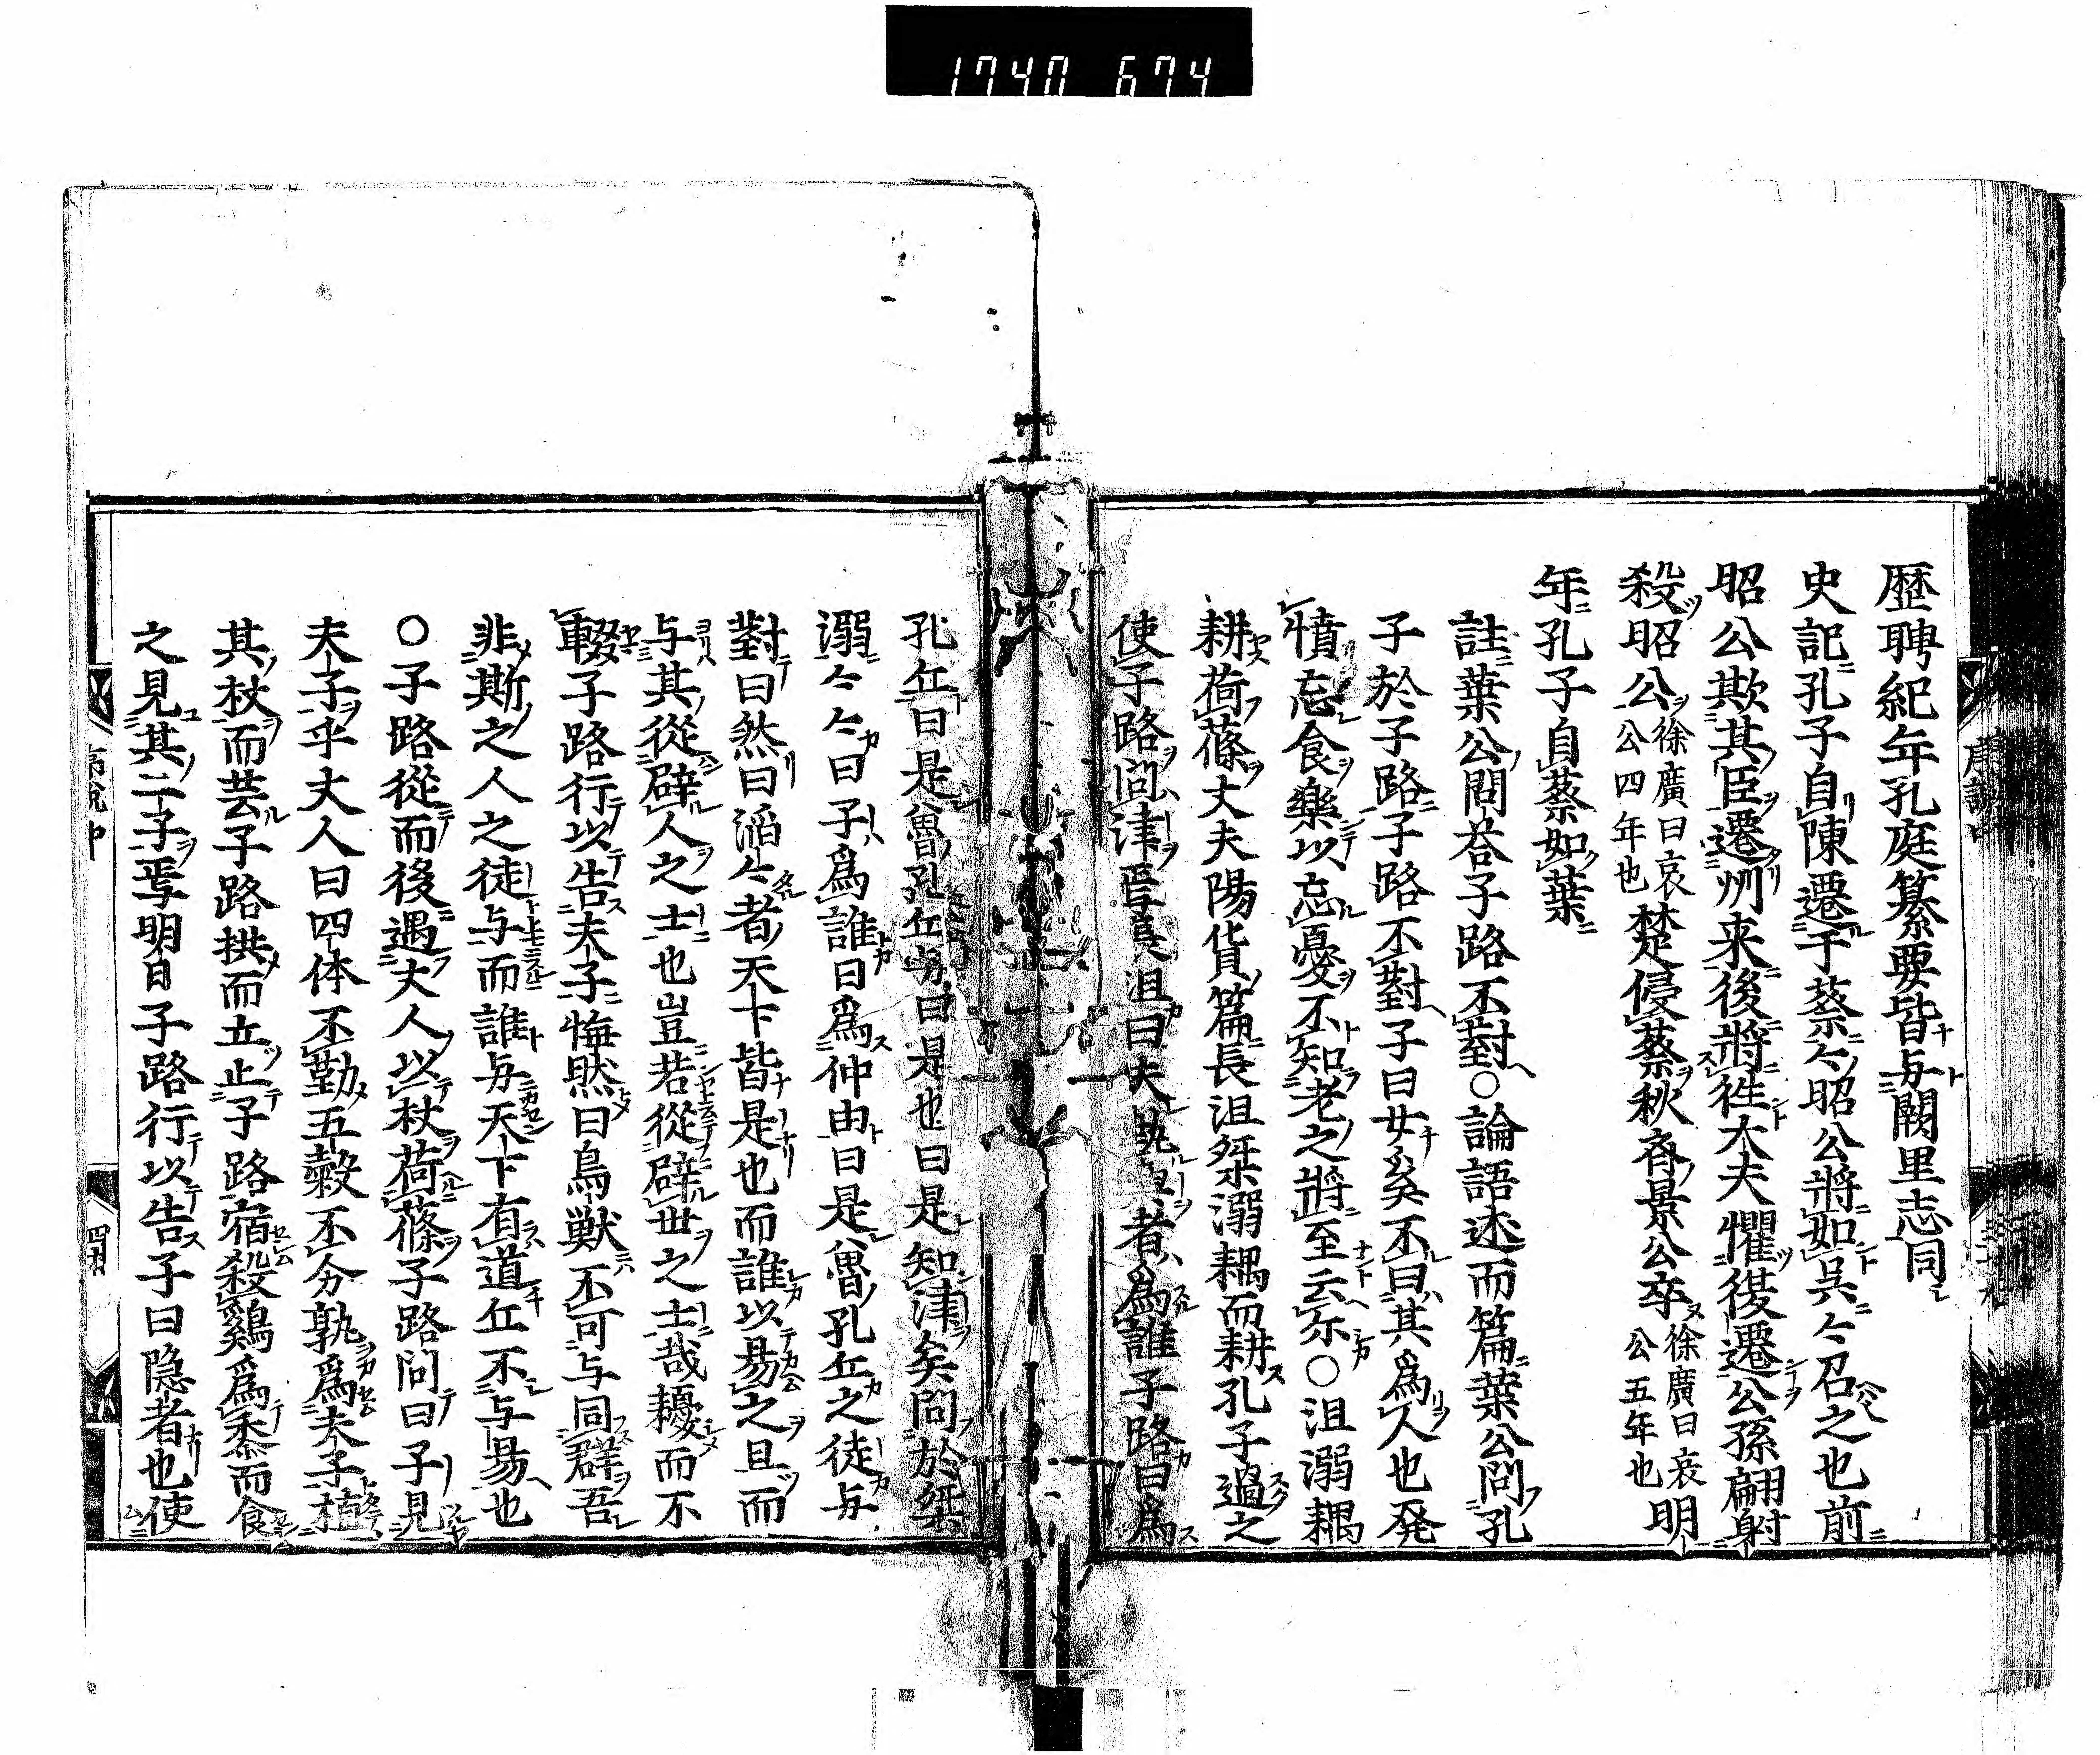 1740 674
歴聘紀年孔庭纂要皆与闕里志同
史記孔子自陳遷于蔡々昭公將如呉々召之也前
昭公欺其臣遷州来後將徃大夫懼復遷公孫翩射
殺昭公徐廣曰哀公四年也楚侵蔡秋齊景公卒徐廣曰哀公五年也明
年孔子自蔡如葉
註葉公問答子路不對○論語述而篇葉公問孔
子於子路子路不對子曰女奚不曰其爲人也発
憤忘食樂以忘憂不知老之將至云尓○沮溺耦
耕荷蓧丈夫陽貨篇長沮桀溺耦而耕孔子過之
使子路問津焉長沮曰夫執輿者爲誰子路曰爲
孔丘曰是魯孔丘与曰是也曰是知津矣問於桀
溺々々曰子爲誰曰爲仲由曰是魯孔丘之徒与
對曰然曰滔々者天下皆是也而誰以易之且而
与其從辟人之士也豈若從辟世之士哉耰而不
輟子路行以告夫子憮然曰鳥獣不可与同群吾
非斯之人之徒与而誰与天下有道丘不与易也
○子路從而後遇丈人以杖荷蓧子路問曰子見
夫子乎丈人曰四体不勤五穀不分孰爲夫子植
其杖而芸子路拱而立止子路宿殺鷄爲黍而食
之見其二子焉明日子路行以告子曰隠者也使